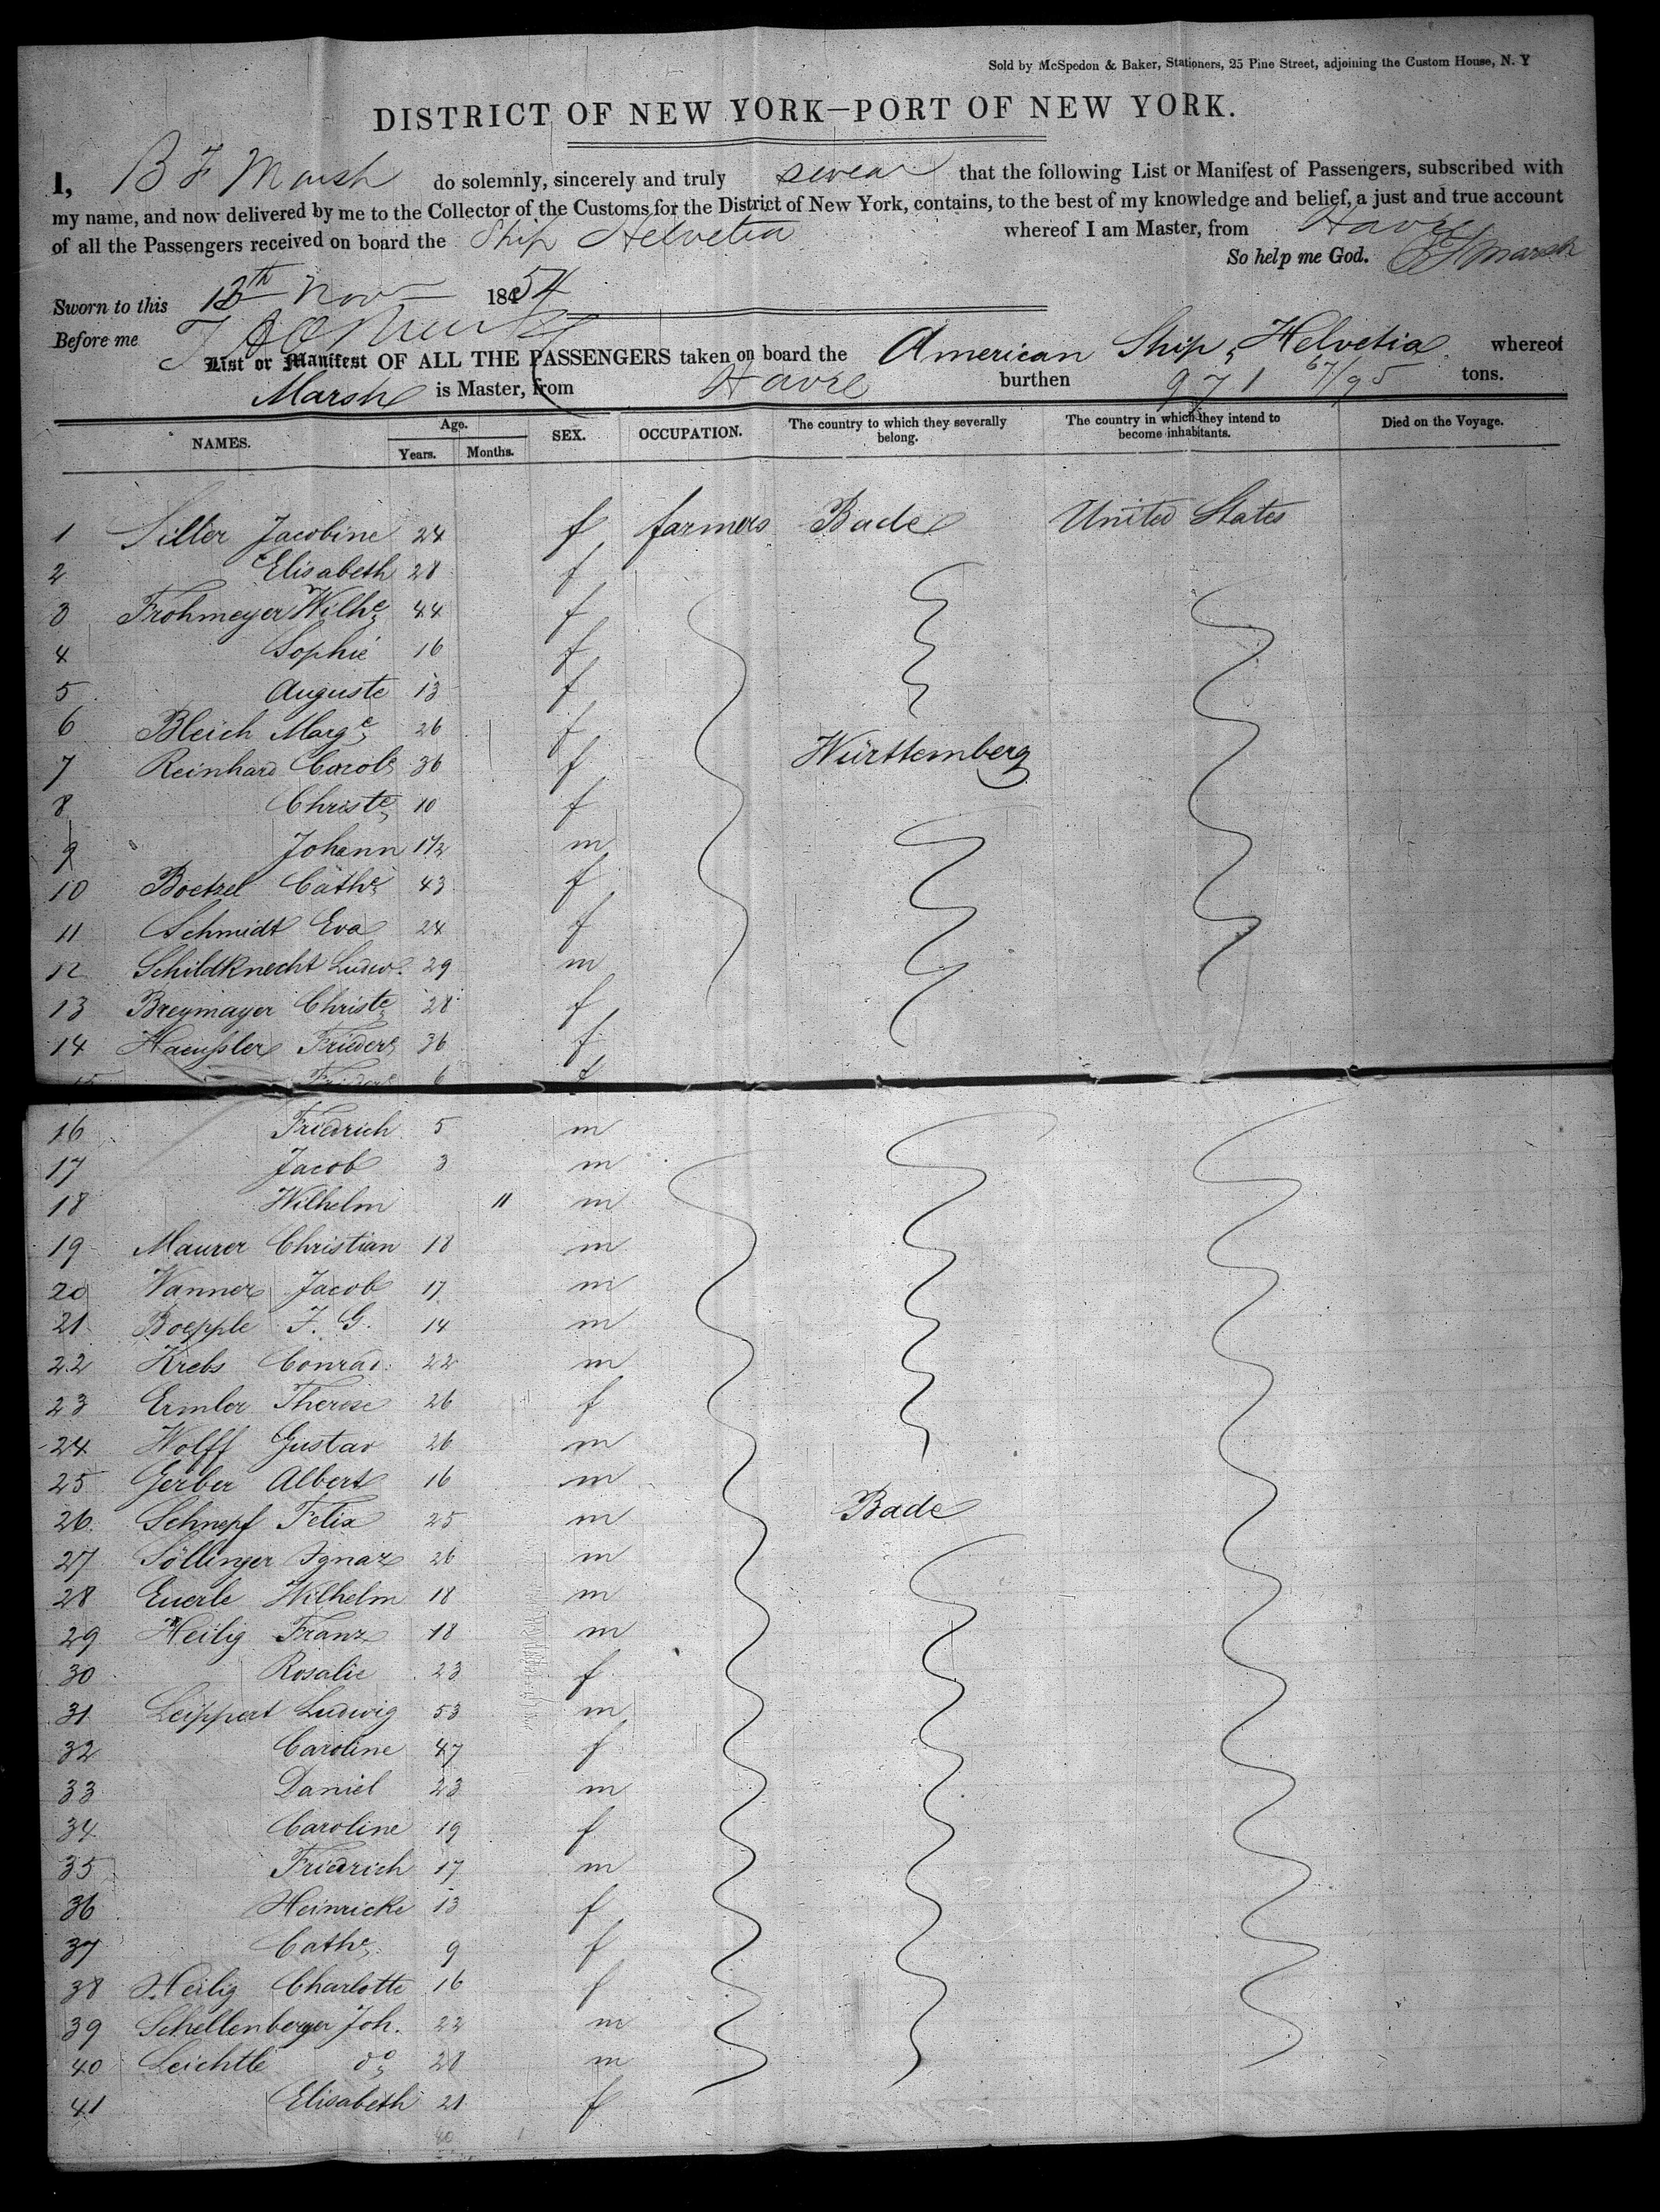 Sold by McSpedon & Baker, Stationers, 25 Pine Street, adjoining the Custom House, N. Y
DISTRICT OF NEW YORK—PORT OF NEW YORK.
I, B F Marsh do solemnly, sincerely and truly swear that the following List or Manifest of Passengers, subscribed with
my name, and now delivered by me to the Collector of the Customs for the District of New York, contains, to the best of my knowledge and belief, a just and true account
of all the Passengers received on board the Ship Helvetia whereof I am Master, from Havre
So help me God. B F Marsh
Sworn to this 13th Nov 1854
Before me
List or Manifest OF ALL THE PASSENGERS taken on board the American Ship Helvetia whereof
Marsh is Master, from Havre burthen 971 67/95 tons.
NAMES. Age. Years. Months. SEX. OCCUPATION. The country to which they severally belong. The country in which they intend to become inhabitants. Died on the Voyage.
1 Siller Jacobine 24 f farmers Bade United States
2 Elisabeth 28 f
3 Frohmeyer Wilhe 44 f
4 Sophie 16 f
5 Auguste 13 f
6 Bleich Marge 26 f
7 Reinhard Carole 36 f Württemberg
8 Christe 10 f
9 Johann 1 1/2 m
10 Boetzel Cathe 43 f
11 Schmidt Eva 24 f
12 Schildknecht Ludw. 29 m
13 Breymayer Christe 28 f
14 Haeussler Frieder 36 f
15 Frieder 6 f
16 Friedrich 5 m
17 Jacob 3 m
18 Wilhelm 11 m
19 Maurer Christian 18 m
20 Wanner Jacob 17 m
21 Boepple J. G. 14 m
22 Krebs Conrad 22 m
23 Ermler Therese 26 f
24 Wolff Gustav 26 m
25 Gerber Albert 16 m
26 Schnepf Felix 25 m Bade
27 Söllinger Ignaz 26 m
28 Euerle Wilhelm 18 m
29 Heilig Franz 18 m
30 Rosalie 23 f
31 Leippert Ludwig 53 m
32 Caroline 47 f
33 Daniel 23 m
34 Caroline 19 f
35 Friedrich 17 m
36 Heinricke 13 f
37 Cathe 9 f
38 Heilig Charlotte 16 f
39 Schellenberger Joh. 22 m
40 Leichtle do 28 m
41 Elisabeth 21 f